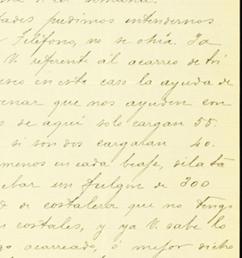 ades pudimos entendernos
Teléfono, no se ohía. Ja
V. referent al acarreo de tri
en este caso la ayuda de
que nos ayuden con
s de aquí solo cargan 55
si son dos cargaran 40.
menos en cada viaje, si la ta
un de 300
d de costalera que no tengo
costales, y ya V. sabe lo
go acarreado, ó mejor dicho